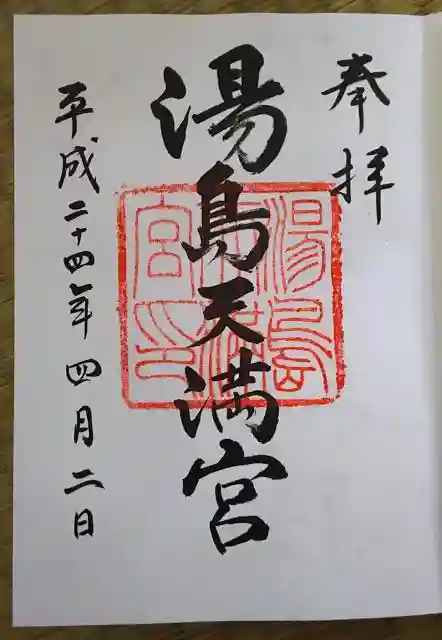 奉拝
湯島天満宮
湯島天満宮印
平成二十四年四月二日